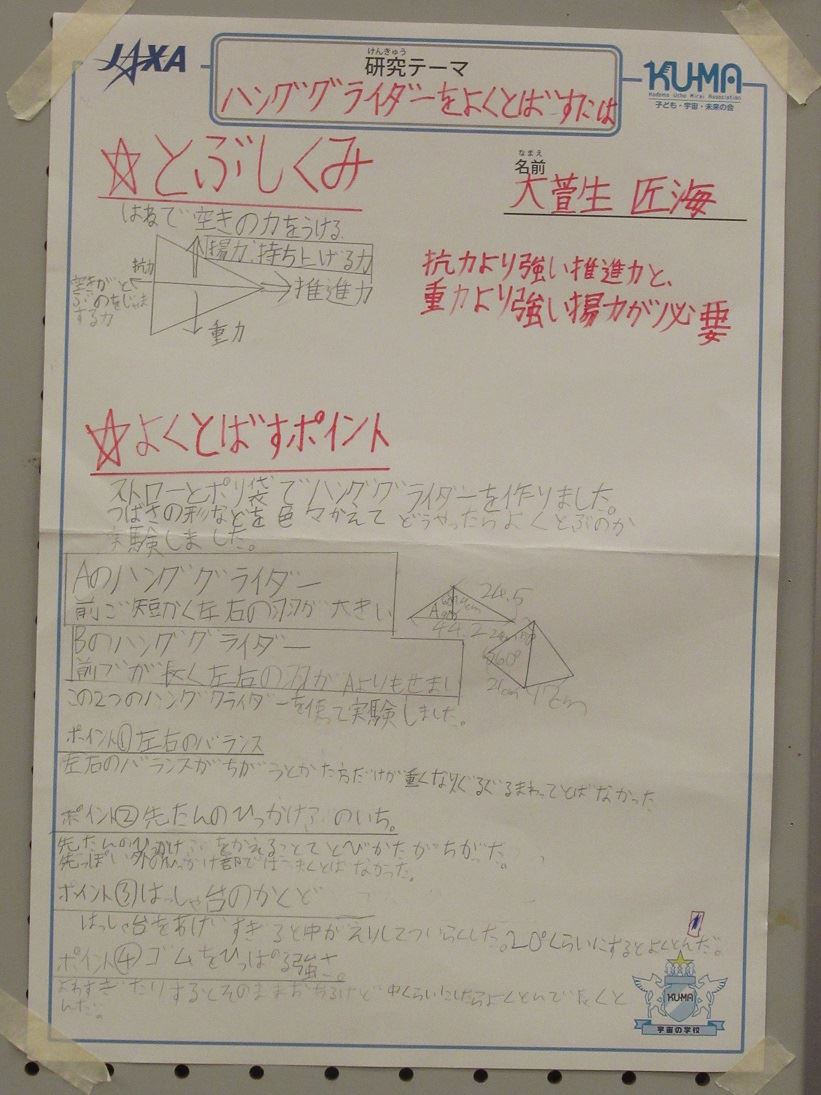 JAXA
けんきゅう
研究テーマ
ハンググライダーをよくとばすには
KU-MA
Kodomo Uchu Mirai Association
子ども・宇宙・未来の会
☆とぶしくみ
なまえ
名前
大萱生 匠海
はねで空きの力をうける.
揚力.持ち上げる力
抗力
空きがと
ぶのをじゃま
する力
推進力
重力
抗力より強い推進力と、
重力より強い揚力が必要
☆よくとばすポイント
ストローとポリ袋でハンググライダーを作りました。
つばさの形などを色々かえてどうやったらよくとぶのか
実験しました。
Aのハンググライダー
前ご短かく左右の羽が大きい
24.5
A
44.2
Bのハンググライダー
前ごが長く左右の羽がAよりもせまい
60°
21cm
17cm
この2つのハンググライダーを使って実験しました。
ポイント①左右のバランス
左右のバランスがちがうとかた方だけが重くなりぐるぐるまわってとばなかった
ポイント②先たんのひっかけ のいち。
先たんのひっかけ をかえることでとびかたがちがった。
先っぽい外のひっかけ部ではうまくとばなかった。
ポイント③はっしゃ台のかくど
はっしゃ台をあげすぎると中がえりしてついらくした。20°くらいにするとよくとんだ。
ポイント④ゴムをひっぱる強さ。
よわすぎたりするとそのままおちるけど中くらいにしたらよくとんで
んだ。
KU-MA
宇宙の学校